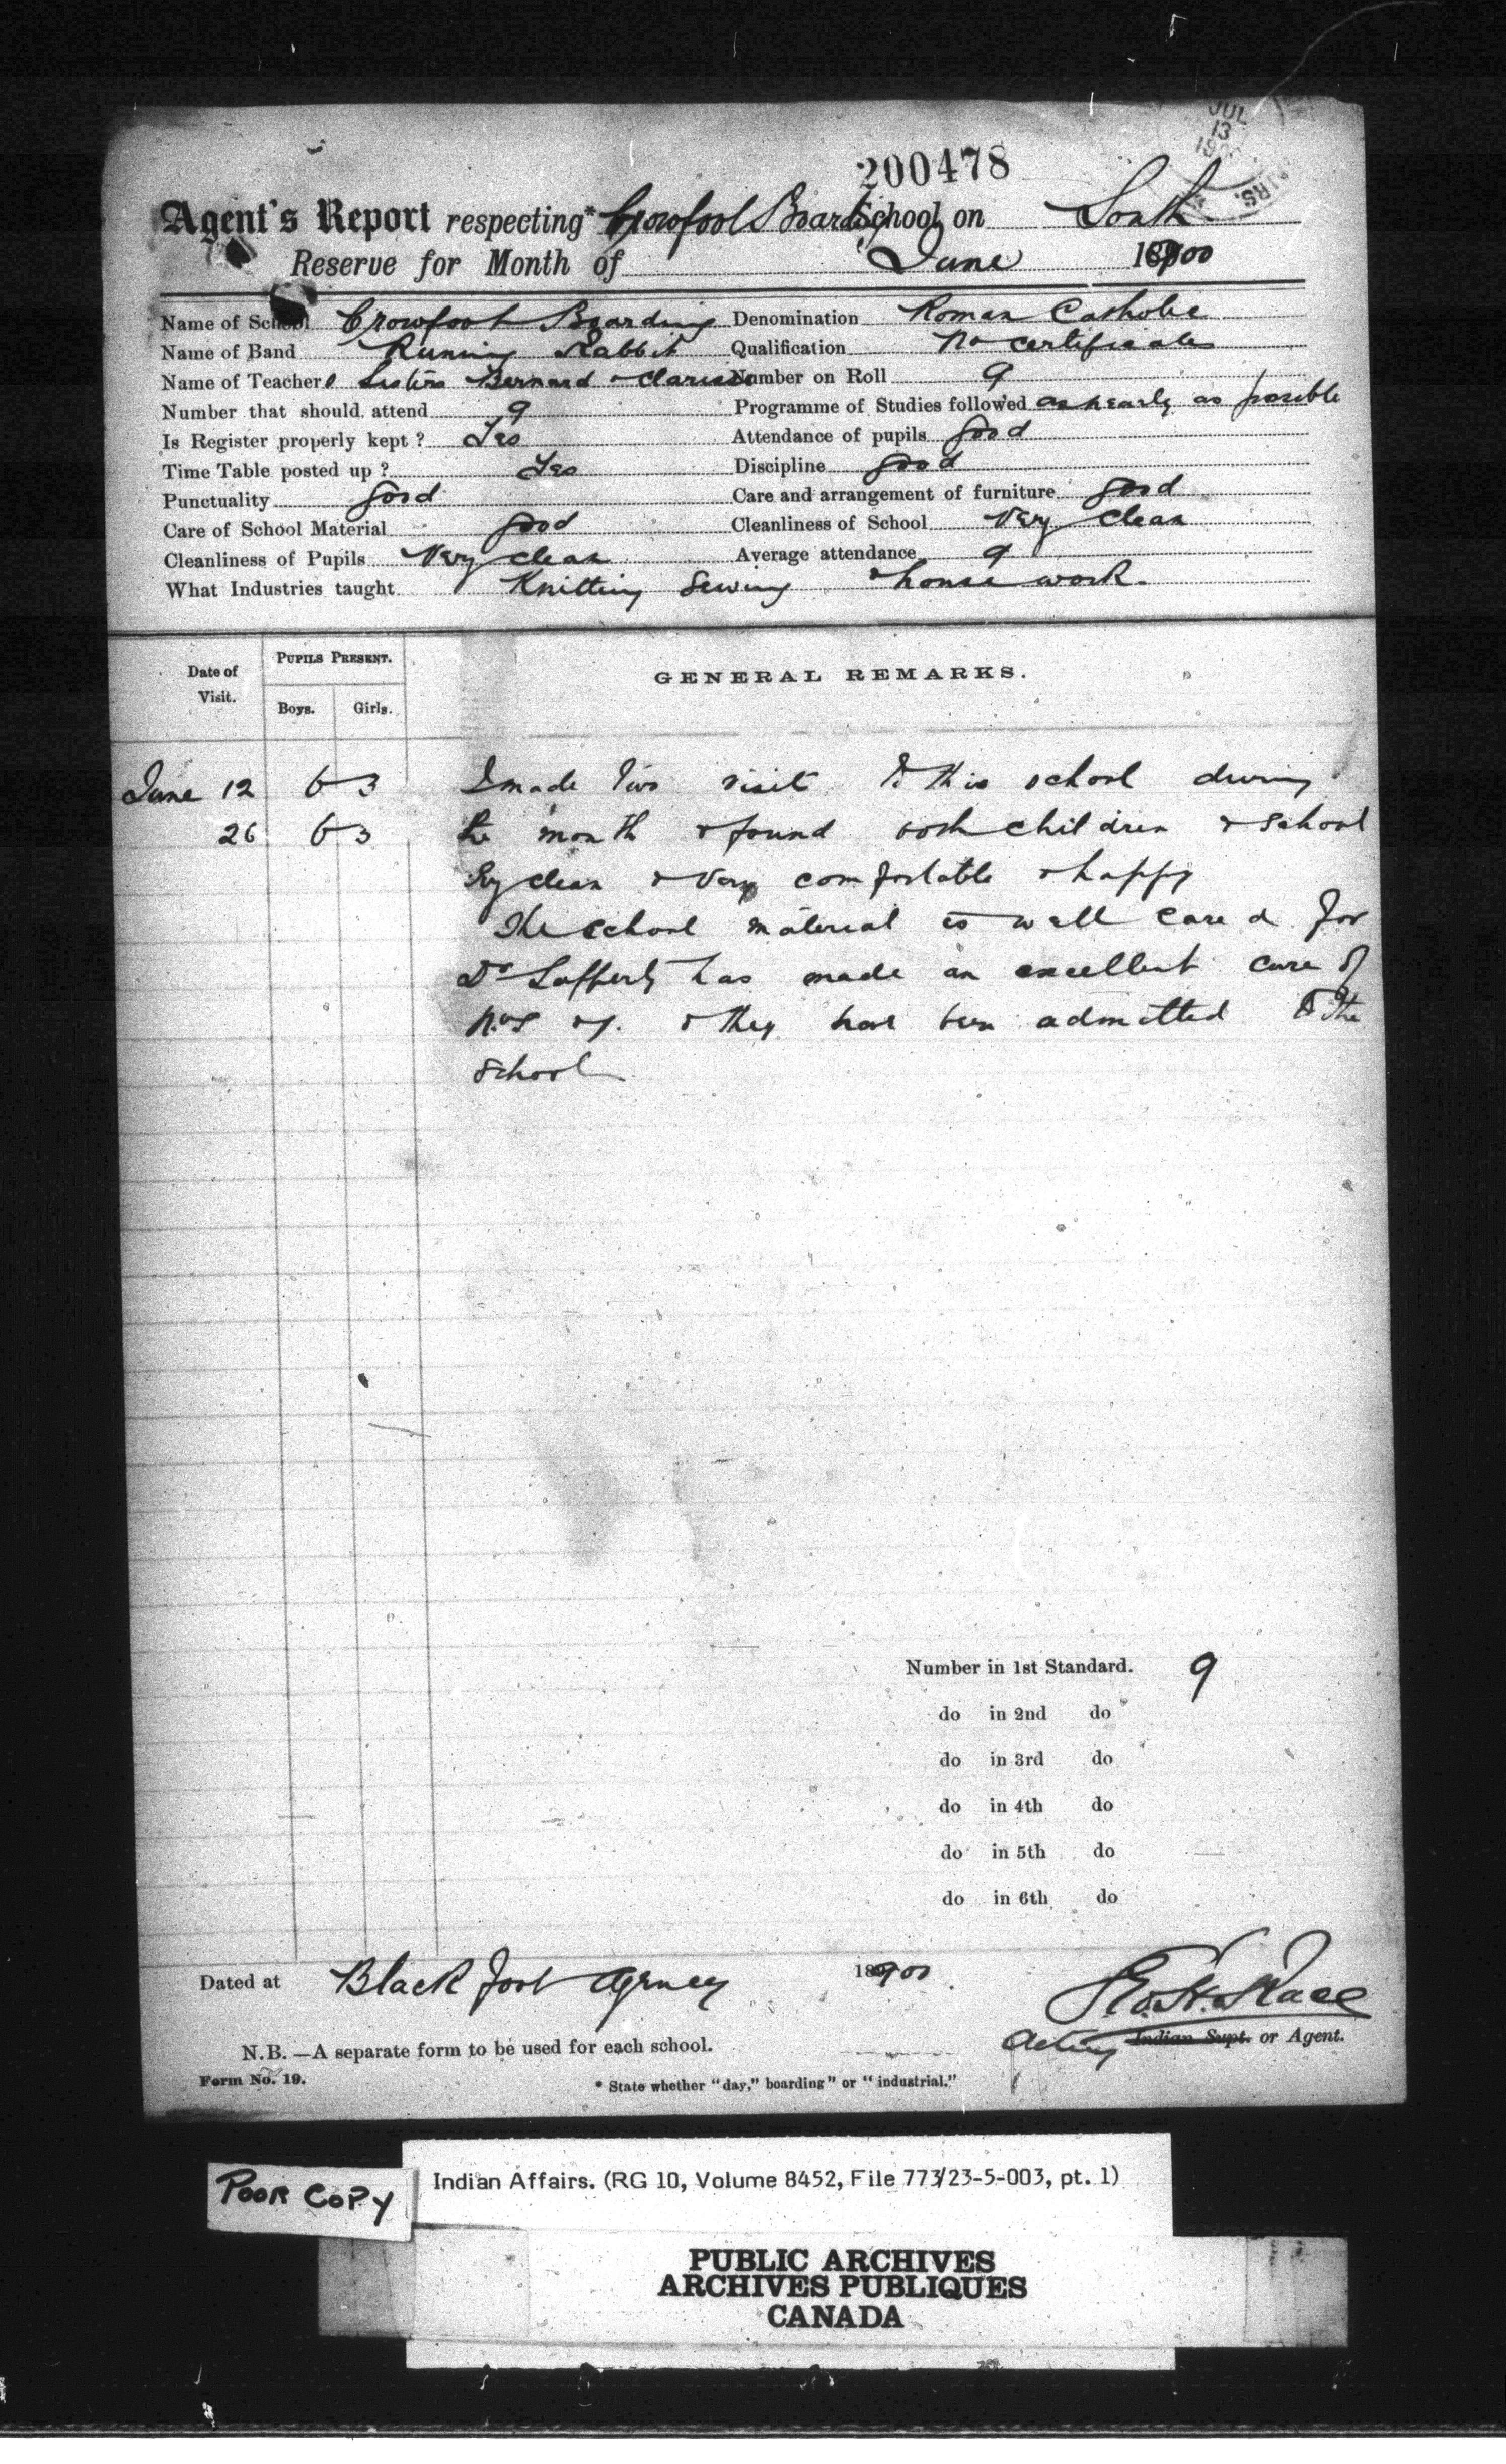 JUL
13
200478
Agent's Report respecting* Crowfoot Boarding School, on South
Reserve for Month of June 1900
Name of School Crowfoot Boarding Denomination Roman Catholic
Name of Band Running Rabbit Qualification No certificates
Name of Teacher Sisters Bernard & Number on Roll 9
Number that should attend 9 Programme of Studies followed as nearly as possible
Is Register properly kept? Yes Attendance of pupils good
Time Table posted up? Yes Discipline good
Punctuality good Care and arrangement of furniture good
Care of School Material good Cleanliness of School Very clean
Cleanliness of Pupils Very clean Average attendance 9
What Industries taught Knitting Sewing & house work.
Date of Visit. PUPILS PRESENT. Boys. Girls. GENERAL REMARKS.
June 12 6 3 I made two visits to this school during
26 6 3 the month & found both children & school
clean & very comfortable & happy
The school material is well cared for
Dr Lafferty has made an excellent cure of
& they have been admitted to the
school
Number in 1st Standard. 9
do in 2nd do
do in 3rd do
do in 4th do
do in 5th do
do in 6th do
Dated at Blackfoot Agency 1900
Geo. H. Race
Acting Indian Supt. or Agent.
N.B.—A separate form to be used for each school.
Form No. 19.
* State whether "day," boarding" or "industrial."
POOR COPY
Indian Affairs. (RG 10, Volume 8452, File 773/23-5-003, pt. 1)
PUBLIC ARCHIVES
ARCHIVES PUBLIQUES
CANADA